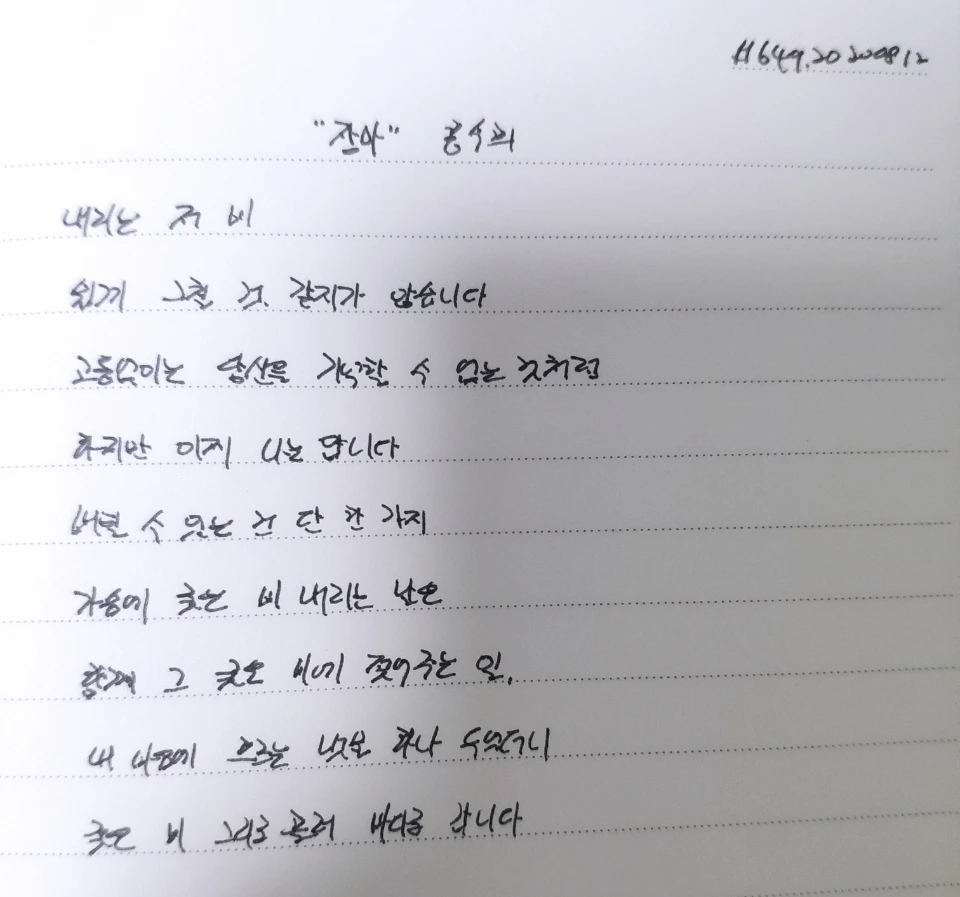 #649. 20200812
"장마" 홍수희
내리는 저 비
쉽게 그칠 것 같지가 않습니다
고통없이는 당신을 기억할 수 없는 것처럼
하지만 이제 나는 압니다
버릴 수 있는 건 단 한 가지
가슴에 궂은 비 내리는 날은
함께 그 궂은 비에 젖어주는 일,
내 마음에 흐르는 냇물 하나 두었더니
궂은 비 그리로 흘러 바다로 갑니다